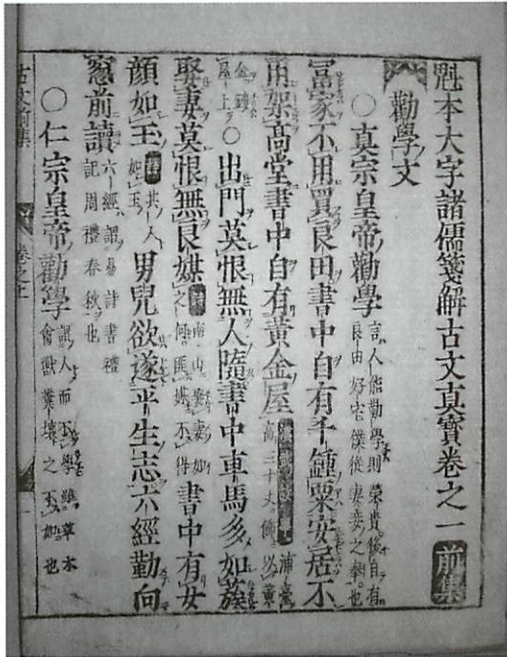 魁本大字諸儒箋解古文真寶卷之一 前集
勸學文
○真宗皇帝勸學 言人能勸學則榮貴後自有良田好宅僕從妻妾之奉也
富家不用買良田書中自有千鍾粟安居不
用架高堂書中自有黃金屋
金磚屋上○出門莫恨無人隨書中車馬多如簇
娶妻莫恨無良媒 書中有女
顏如玉 男兒欲遂平生志六經勤向
窻前讀 六經謂易詩書禮記周禮春秋也
○仁宗皇帝勸學 謂人而不學雖草木禽獸糞壤之不如也